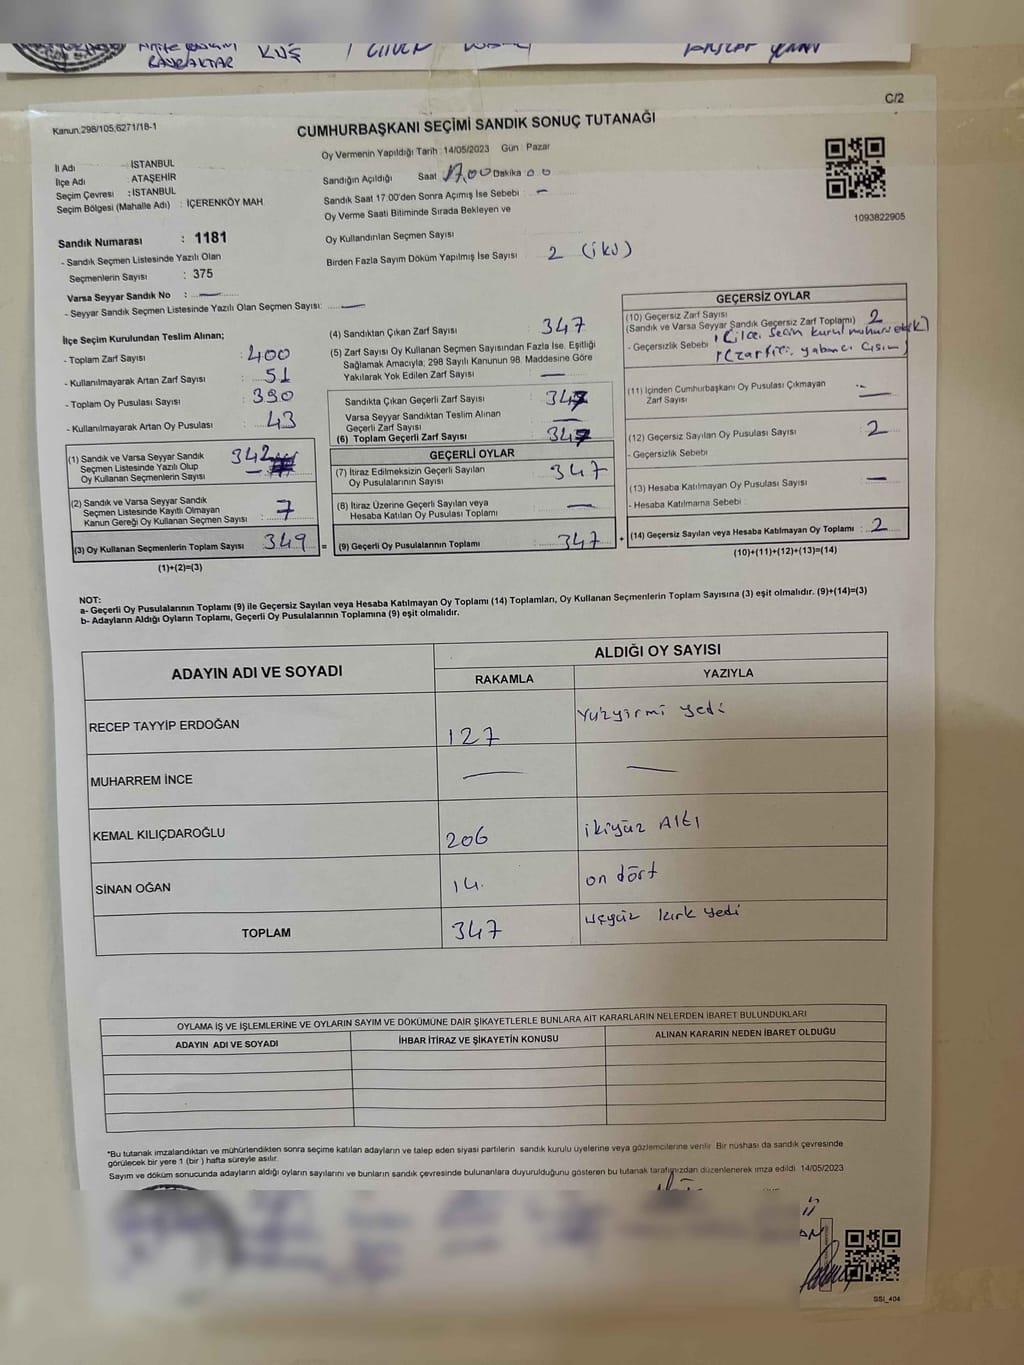 BAYRAKTAR
KUŞ
C/2
Kanun:298/105,6271/18-1
CUMHURBAŞKANI SEÇİMİ SANDIK SONUÇ TUTANAĞI
İl Adı : İSTANBUL
İlçe Adı : ATAŞEHİR
Seçim Çevresi : İSTANBUL
Seçim Bölgesi (Mahalle Adı) : İÇERENKÖY MAH
Oy Vermenin Yapıldığı Tarih : 14/05/2023 Gün : Pazar
Sandığın Açıldığı Saat 17,00 Dakika 00
Sandık Saat 17:00'den Sonra Açımış İse Sebebi : —
Oy Verme Saati Bitiminde Sırada Bekleyen ve
Oy Kullandırılan Seçmen Sayısı
Birden Fazla Sayım Döküm Yapılmış İse Sayısı : 2 (iki)
1093822905
Sandık Numarası : 1181
- Sandık Seçmen Listesinde Yazılı Olan
Seçmenlerin Sayısı : 375
Varsa Seyyar Sandık No : —
- Seyyar Sandık Seçmen Listesinde Yazılı Olan Seçmen Sayısı: —
İlçe Seçim Kurulundan Teslim Alınan;
- Toplam Zarf Sayısı : 400
- Kullanılmayarak Artan Zarf Sayısı : 51
- Toplam Oy Pusulası Sayısı : 390
- Kullanılmayarak Artan Oy Pusulası : 43
(1) Sandık ve Varsa Seyyar Sandık
Seçmen Listesinde Yazılı Olup
Oy Kullanan Seçmenlerin Sayısı 342
(2) Sandık ve Varsa Seyyar Sandık
Seçmen Listesinde Kayıtlı Olmayan
Kanun Gereği Oy Kullanan Seçmen Sayısı : 7
(3) Oy Kullanan Seçmenlerin Toplam Sayısı 349 =
(1)+(2)=(3)
(4) Sandıktan Çıkan Zarf Sayısı : 347
(5) Zarf Sayısı Oy Kullanan Seçmen Sayısından Fazla İse, Eşitliği
Sağlamak Amacıyla, 298 Sayılı Kanunun 98. Maddesine Göre
Yakılarak Yok Edilen Zarf Sayısı : —
Sandıkta Çıkan Geçerli Zarf Sayısı : 347
Varsa Seyyar Sandıktan Teslim Alınan
Geçerli Zarf Sayısı : —
(6) Toplam Geçerli Zarf Sayısı : 347
GEÇERLİ OYLAR
(7) İtiraz Edilmeksizin Geçerli Sayılan
Oy Pusulalarının Sayısı : 347
(8) İtiraz Üzerine Geçerli Sayılan veya
Hesaba Katılan Oy Pusulası Toplamı : —
(9) Geçerli Oy Pusulalarının Toplamı : 347 +
GEÇERSİZ OYLAR
(10) Geçersiz Zarf Sayısı
(Sandık ve Varsa Seyyar Sandık Geçersiz Zarf Toplamı) : 2
- Geçersizlik Sebebi : 1 (ilçe seçim kurul mührü eksik)
1 (zarf içi yabancı cisim)
(11) İçinden Cumhurbaşkanı Oy Pusulası Çıkmayan
Zarf Sayısı : —
(12) Geçersiz Sayılan Oy Pusulası Sayısı : 2
- Geçersizlik Sebebi
(13) Hesaba Katılmayan Oy Pusulası Sayısı : —
- Hesaba Katılmama Sebebi
(14) Geçersiz Sayılan veya Hesaba Katılmayan Oy Toplamı : 2
(10)+(11)+(12)+(13)=(14)
NOT:
a- Geçerli Oy Pusulalarının Toplamı (9) ile Geçersiz Sayılan veya Hesaba Katılmayan Oy Toplamı (14) Toplamları, Oy Kullanan Seçmenlerin Toplam Sayısına (3) eşit olmalıdır. (9)+(14)=(3)
b- Adayların Aldığı Oyların Toplamı, Geçerli Oy Pusulalarının Toplamına (9) eşit olmalıdır.
ADAYIN ADI VE SOYADI
ALDIĞI OY SAYISI
RAKAMLA YAZIYLA
RECEP TAYYİP ERDOĞAN 127 Yüzyirmi yedi
MUHARREM İNCE — —
KEMAL KILIÇDAROĞLU 206 ikiyüz Altı
SİNAN OĞAN 14. on dört
TOPLAM 347 üçyüz kırk yedi
OYLAMA İŞ VE İŞLEMLERİNE VE OYLARIN SAYIM VE DÖKÜMÜNE DAİR ŞİKAYETLERLE BUNLARA AİT KARARLARIN NELERDEN İBARET BULUNDUKLARI
ADAYIN ADI VE SOYADI İHBAR İTİRAZ VE ŞİKAYETİN KONUSU ALINAN KARARIN NEDEN İBARET OLDUĞU
*Bu tutanak imzalandıktan ve mühürlendikten sonra seçime katılan adayların ve talep eden siyasi partilerin sandık kurulu üyelerine veya gözlemcilerine verilir. Bir nüshası da sandık çevresinde
görülecek bir yere 1 (bir ) hafta süreyle asılır.
Sayım ve döküm sonucunda adayların aldığı oyların sayılarını ve bunların sandık çevresinde bulunanlara duyurulduğunu gösteren bu tutanak tarafımızdan düzenlenerek imza edildi. 14/05/2023
SSI_404